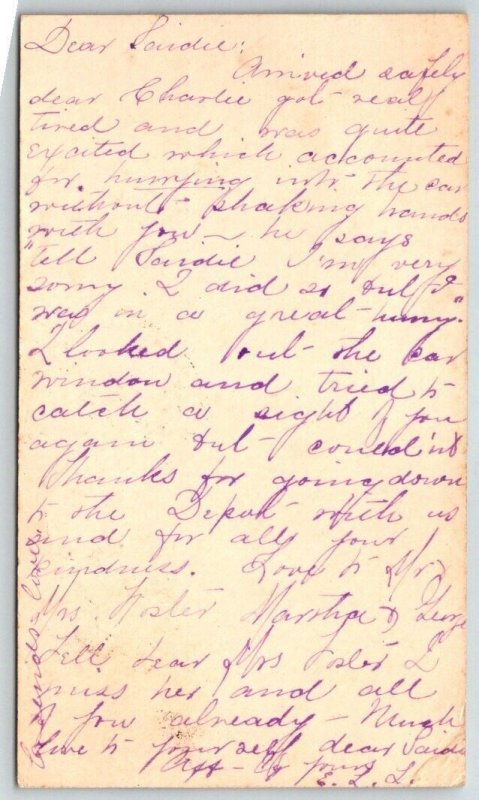 Dear Saidie:
Arrived safely
dear Charlie got really
tired and was quite
excited which accounted
for hurrying into the car
without shaking hands
with you — he says
"tell Saidie I'm very
sorry I did so but I
was in a great hurry."
I looked out the car
window and tried to
catch a sight of you
again but could'nt
Thanks for going down
to the Depot with us
and for all your
kindness. Love to Mr &
Mrs. Foster Martha & George
Tell dear Mrs Foster I
miss her and all
of you already — Much
love to yourself dear Saidie
Aff— yours
E. L. L.
sends love to